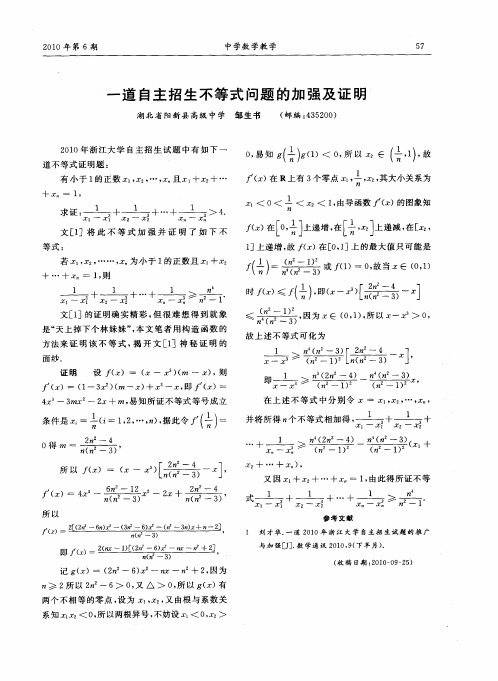 2010 年第 6 期 中学数学教学 57
一道自主招生不等式问题的加强及证明
湖北省阳新县高级中学 邹生书 (邮编:435200)
2010 年浙江大学自主招生试题中有如下一
道不等式证明题:
有小于 1 的正数 x₁,x₂,…,xₙ 且 x₁+x₂+…
+xₙ = 1,
求证:1/(x₁−x₁³)+1/(x₂−x₂³)+…+1/(xₙ−xₙ³)>4.
文[1] 将此不等式加强并证明了如下不
等式:
若 x₁,x₂,……,xₙ 为小于 1 的正数且 x₁+x₂
+…+xₙ = 1,则
1/(x₁−x₁³)+1/(x₂−x₂³)+…+1/(xₙ−xₙ³) ≥ n⁴/(n²−1).
文[1] 的证明确实精彩,但很难想得到就象
是“天上掉下个林妹妹”,本文笔者用构造函数的
方法来证明该不等式,揭开文[1] 神秘证明的
面纱.
证明 设 f(x) = (x−x³)(m−x),则
f′(x) = (1−3x²)(m−x)+x³−x,即 f′(x) =
4x³−3mx²−2x+m,易知所证不等式等号成立
条件是 xᵢ = 1/n (i=1,2,…,n),据此令 f′(1/n) =
0 得 m = (2n²−4)/(n(n²−3)),
所以 f(x) = (x−x³)[(2n²−4)/(n(n²−3))−x],
f′(x) = 4x³−(6n²−12)/(n(n²−3))x²−2x+(2n²−4)/(n(n²−3)),
所以
f′(x) = 2[(2n³−6n)x³−(3n²−6)x²−(n³−3n)x+n²−2]/(n(n²−3)),
即 f′(x) = 2(nx−1)[(2n²−6)x²−nx−n²+2]/(n(n²−3)),
记 g(x) = (2n²−6)x²−nx−n²+2,因为
n≥2 所以 2n²−6>0,又 △>0,所以 g(x) 有
两个不相等的零点,设为 x₁,x₂,又由根与系数关
系知 x₁x₂<0,所以两根异号,不妨设 x₁<0,x₂>
0,易知 g(1/n)g(1) < 0,所以 x₂ ∈ (1/n,1),故
f′(x) 在 R 上有 3 个零点 x₁,1/n,x₂,其大小关系为
x₁<0<1/n<x₂<1,由导函数 f′(x) 的图象知
f(x) 在 [0,1/n] 上递增,在 [1/n,x₂] 上递减,在 [x₂,
1] 上递增,故 f(x) 在 [0,1] 上的最大值只可能是
f(1/n) = (n²−1)²/(n⁴(n²−3)) 或 f(1) = 0,故当 x ∈ (0,1)
时 f(x) ≤ f(1/n),即 (x−x³)[(2n²−4)/(n(n²−3))−x]
≤ (n²−1)²/(n⁴(n²−3)),因为 x ∈ (0,1),所以 x−x³>0,
故上述不等式可化为
1/(x−x³) ≥ n⁴(n²−3)/(n²−1)² [(2n²−4)/(n(n²−3))−x],
即 1/(x−x³) ≥ n³(2n²−4)/(n²−1)² − n⁴(n²−3)/(n²−1)² x,
在上述不等式中分别令 x = x₁,x₂,…,xₙ,
并将所得 n 个不等式相加得,1/(x₁−x₁³)+1/(x₂−x₂³)+
…+1/(xₙ−xₙ³) ≥ n⁴(2n²−4)/(n²−1)² − n⁴(n²−3)/(n²−1)² (x₁+
x₂+…+xₙ),
又因 x₁+x₂+…+xₙ = 1,由此得所证不等
式 1/(x₁−x₁³)+1/(x₂−x₂³)+…+1/(xₙ−xₙ³) ≥ n⁴/(n²−1).
参考文献
1 刘才华.一道 2010 年浙江大学自主招生试题的推广
与加强[J].数学通讯 2010,9(下半月).
(收稿日期:2010-09-25)